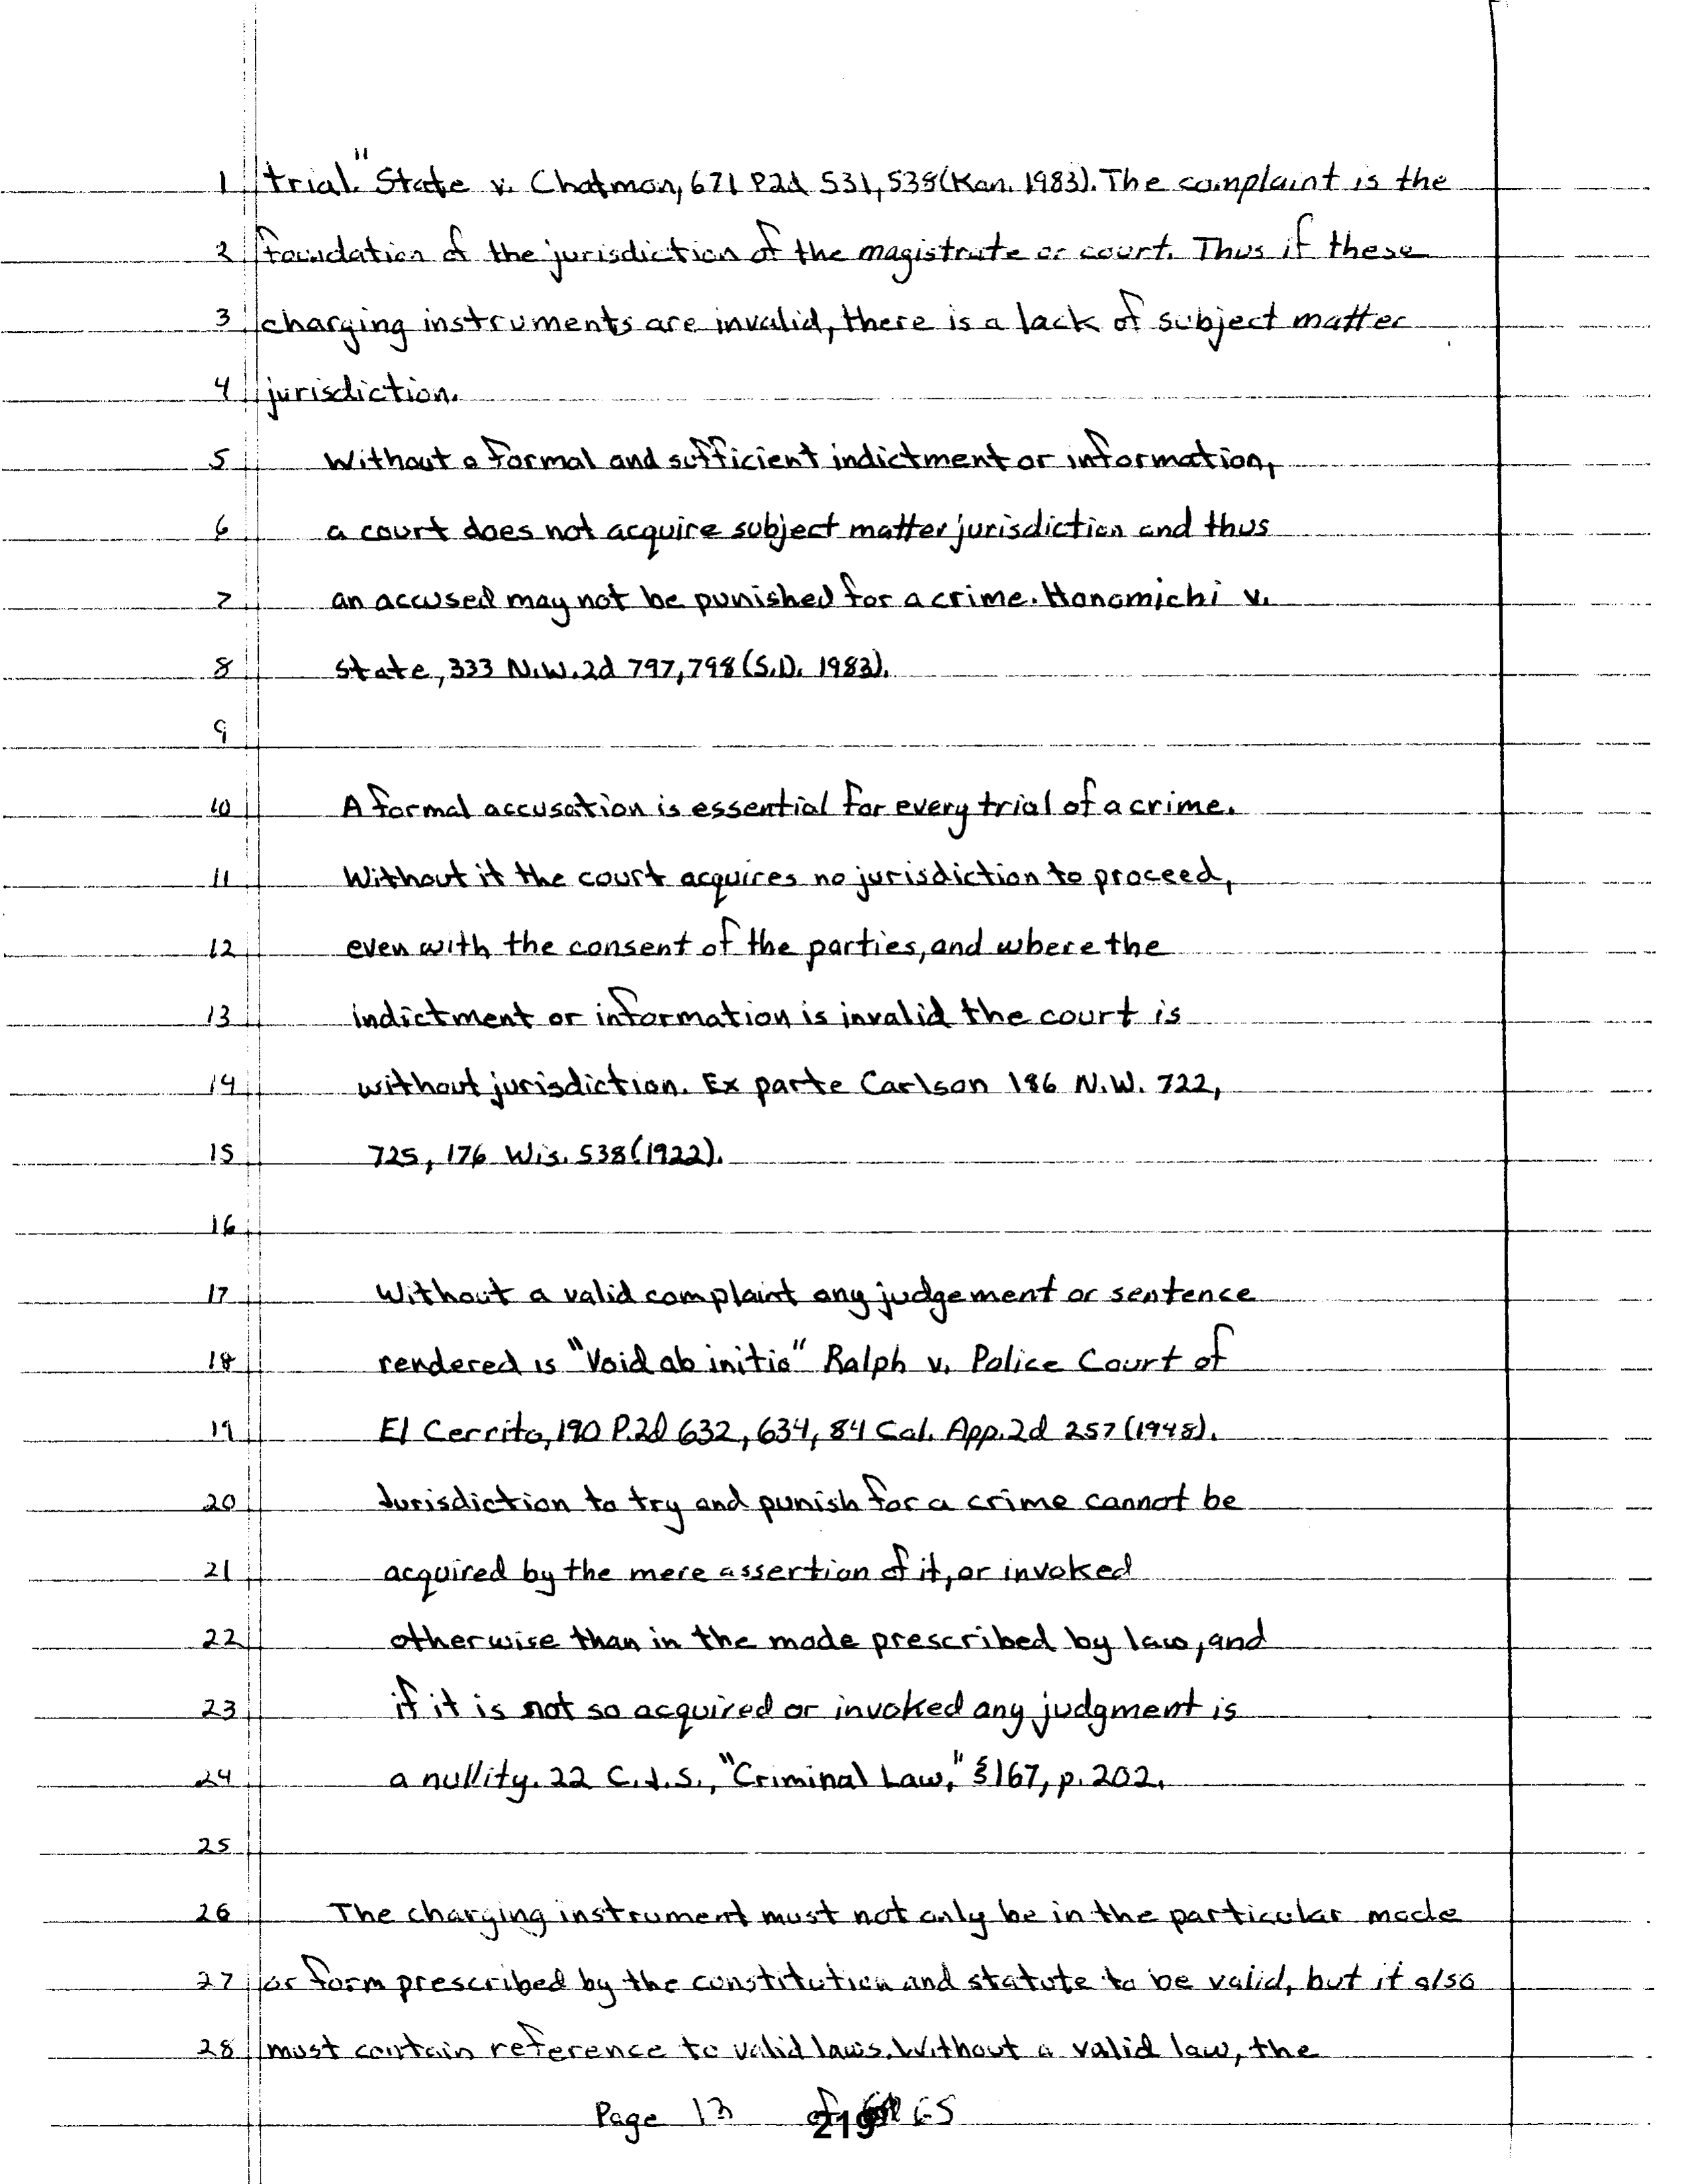 1 trial." State v. Chatmon, 671 P.2d 531, 538 (Kan. 1983). The complaint is the
2 foundation of the jurisdiction of the magistrate or court. Thus if these
3 charging instruments are invalid, there is a lack of subject matter
4 jurisdiction.
5 Without a formal and sufficient indictment or information,
6 a court does not acquire subject matter jurisdiction and thus
7 an accused may not be punished for a crime. Honomichi v.
8 State, 333 N.W.2d 797, 798 (S.D. 1983).
9
10 A formal accusation is essential for every trial of a crime.
11 Without it the court acquires no jurisdiction to proceed,
12 even with the consent of the parties, and where the
13 indictment or information is invalid the court is
14 without jurisdiction. Ex parte Carlson 186 N.W. 722,
15 725, 176 Wis. 538 (1922).
16
17 Without a valid complaint any judgement or sentence
18 rendered is "Void ab initio" Ralph v. Police Court of
19 El Cerrito, 190 P.2d 632, 634, 84 Cal. App. 2d 257 (1948).
20 Jurisdiction to try and punish for a crime cannot be
21 acquired by the mere assertion of it, or invoked
22 otherwise than in the mode prescribed by law, and
23 if it is not so acquired or invoked any judgment is
24 a nullity. 22 C.J.S., "Criminal Law," §167, p. 202.
25
26 The charging instrument must not only be in the particular mode
27 or form prescribed by the constitution and statute to be valid, but it also
28 must contain reference to valid laws. Without a valid law, the
Page 13 of 65
219